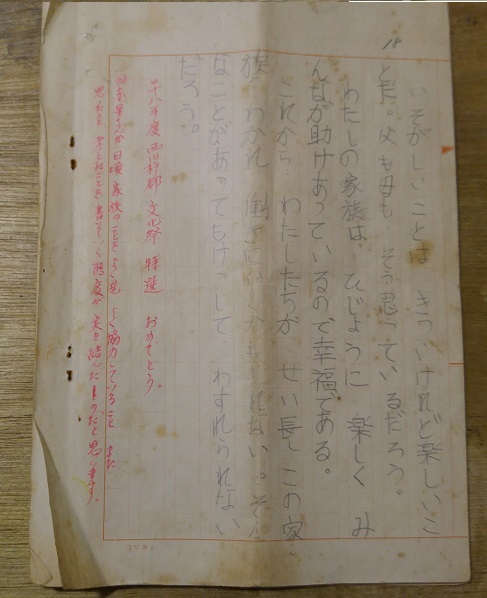 18
いそがしいことは きついけれど楽しいこ
とだ。父も母も そう思っているだろう。
わたしの家族は、ひじょうに 楽しく み
んなが助けあっているので幸福である。
これから わたしたちが せい長し この家
族 わかれ 働きに いくかもしれない。そん
なことがあってもけっして わすれられない
だろう。
廿八年度 西臼杵郡 文化祭 特選 おめでとう。
さんが日頃 家族のことをよく見 よく協力していること また
思ったこと 考えたことを 書いていく態度が 実を結んだものだと思います。
コクヨ